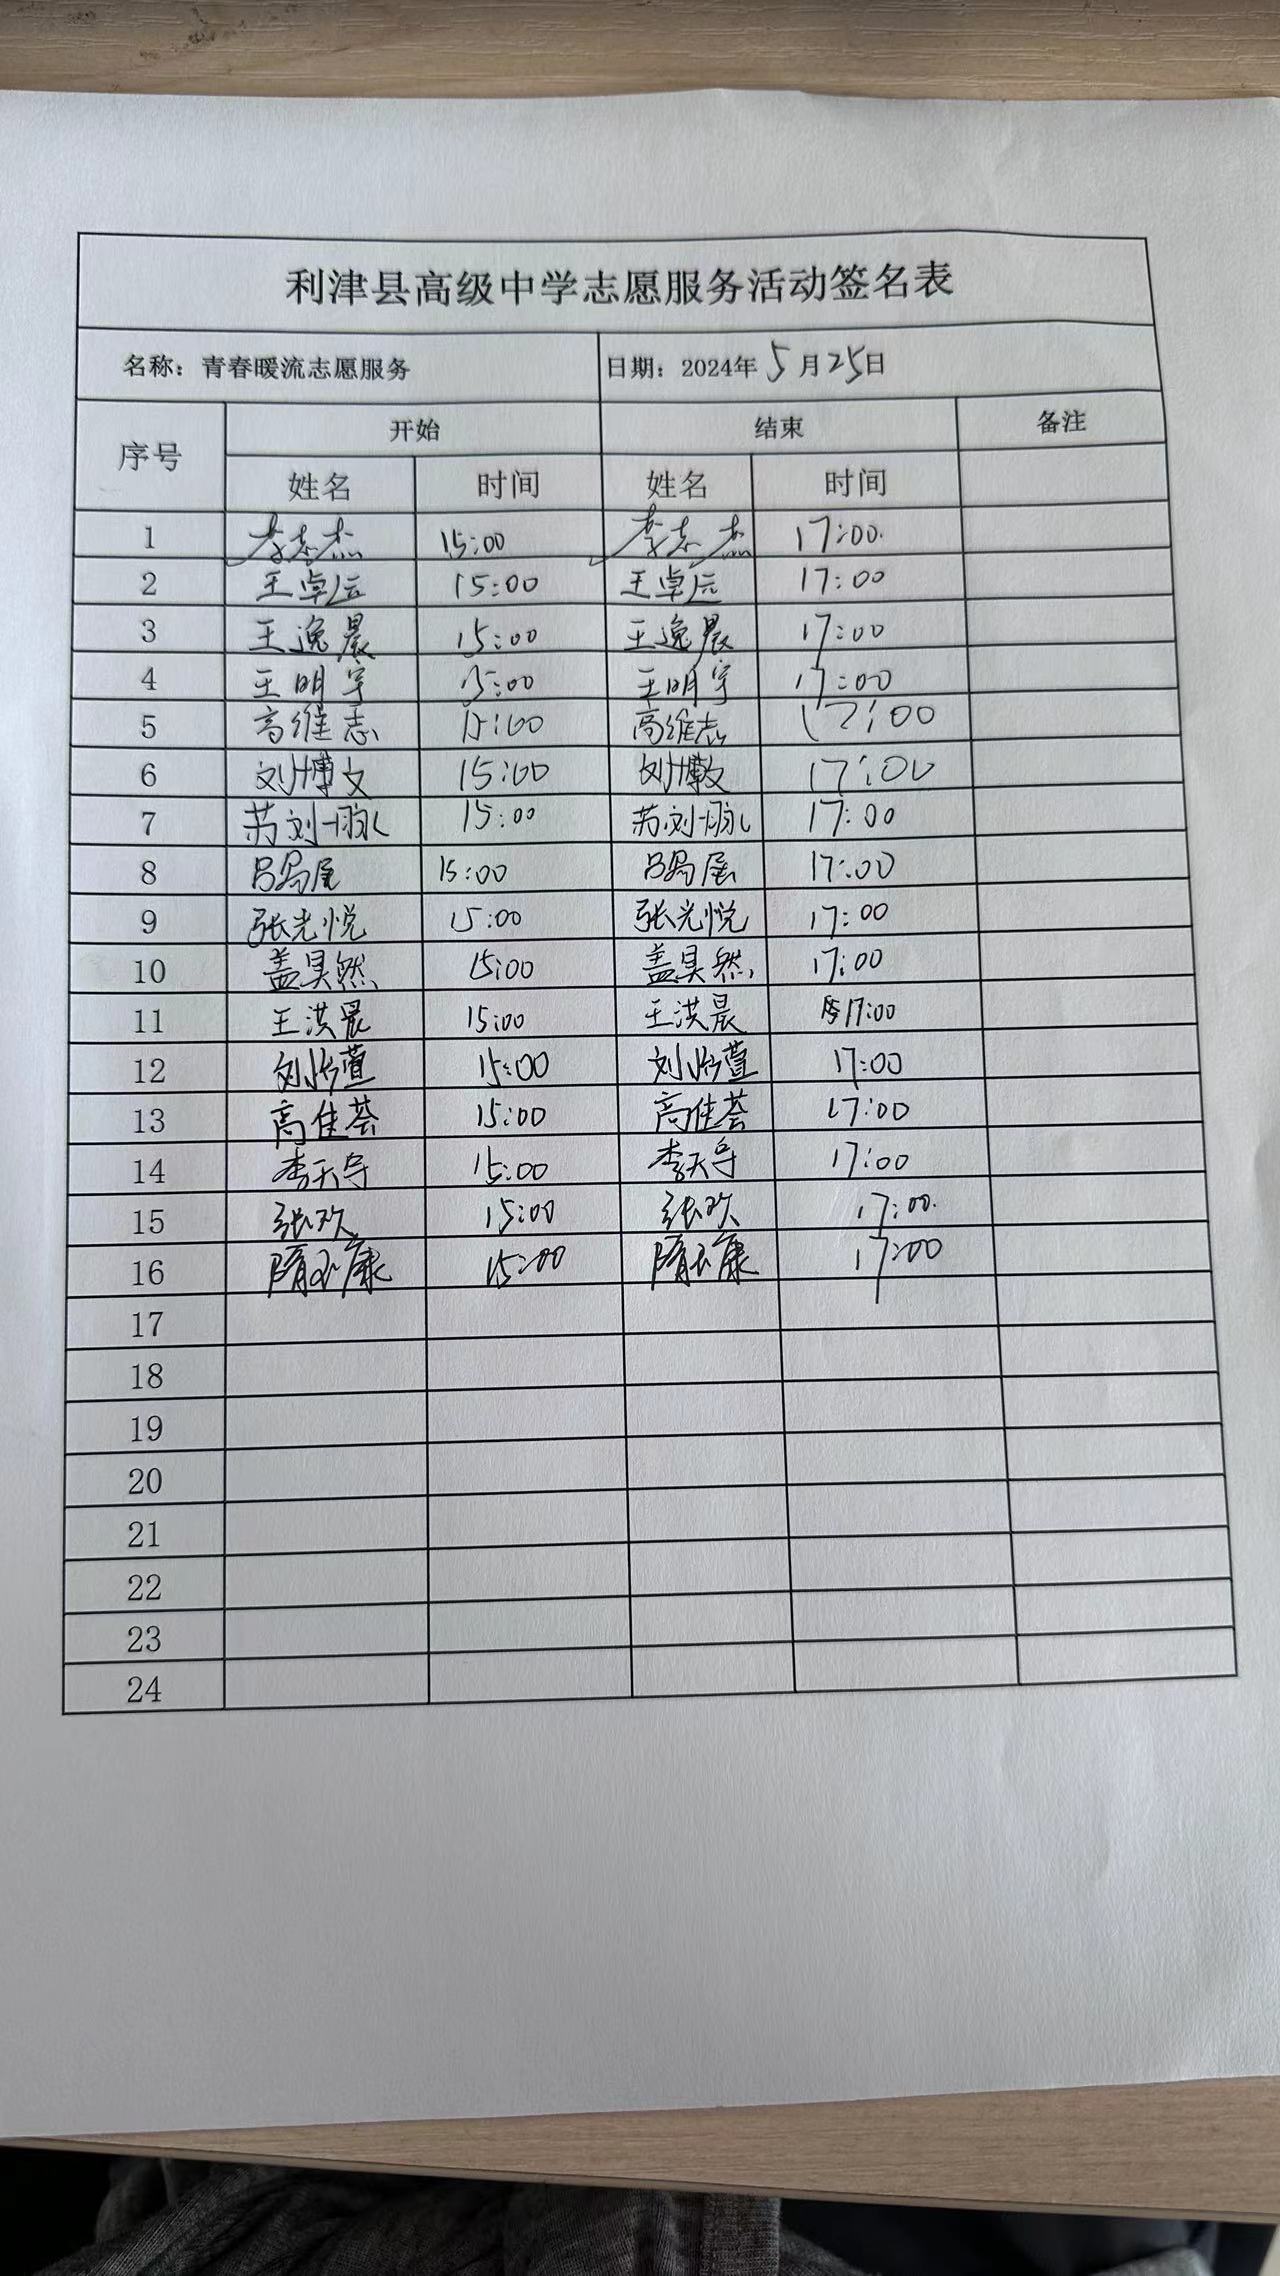 利津县高级中学志愿服务活动签名表
名称：青春暖流志愿服务 日期：2024年5月25日
序号 开始 结束 备注
姓名 时间 姓名 时间
1 李志杰 15:00 李志杰 17:00.
2 王卓 15:00 王卓 17:00
3 王逸晨 15:00 王逸晨 17:00
4 王明宇 15:00 王明宇 17:00
5 高维志 15:00 高维志 17:00
6 刘博文 15:00 刘博文 17:00
7 15:00 17:00
8 15:00 17:00
9 张光悦 15:00 张光悦 17:00
10 盖昊然 15:00 盖昊然 17:00
11 王洪晨 15:00 王洪晨 17:00
12 刘怡萱 15:00 刘怡萱 17:00
13 高佳荟 15:00 高佳荟 17:00
14 李天 15:00 李天 17:00
15 张欢 15:00 张欢 17:00.
16 隋玉康 15:00 隋玉康 17:00
17
18
19
20
21
22
23
24